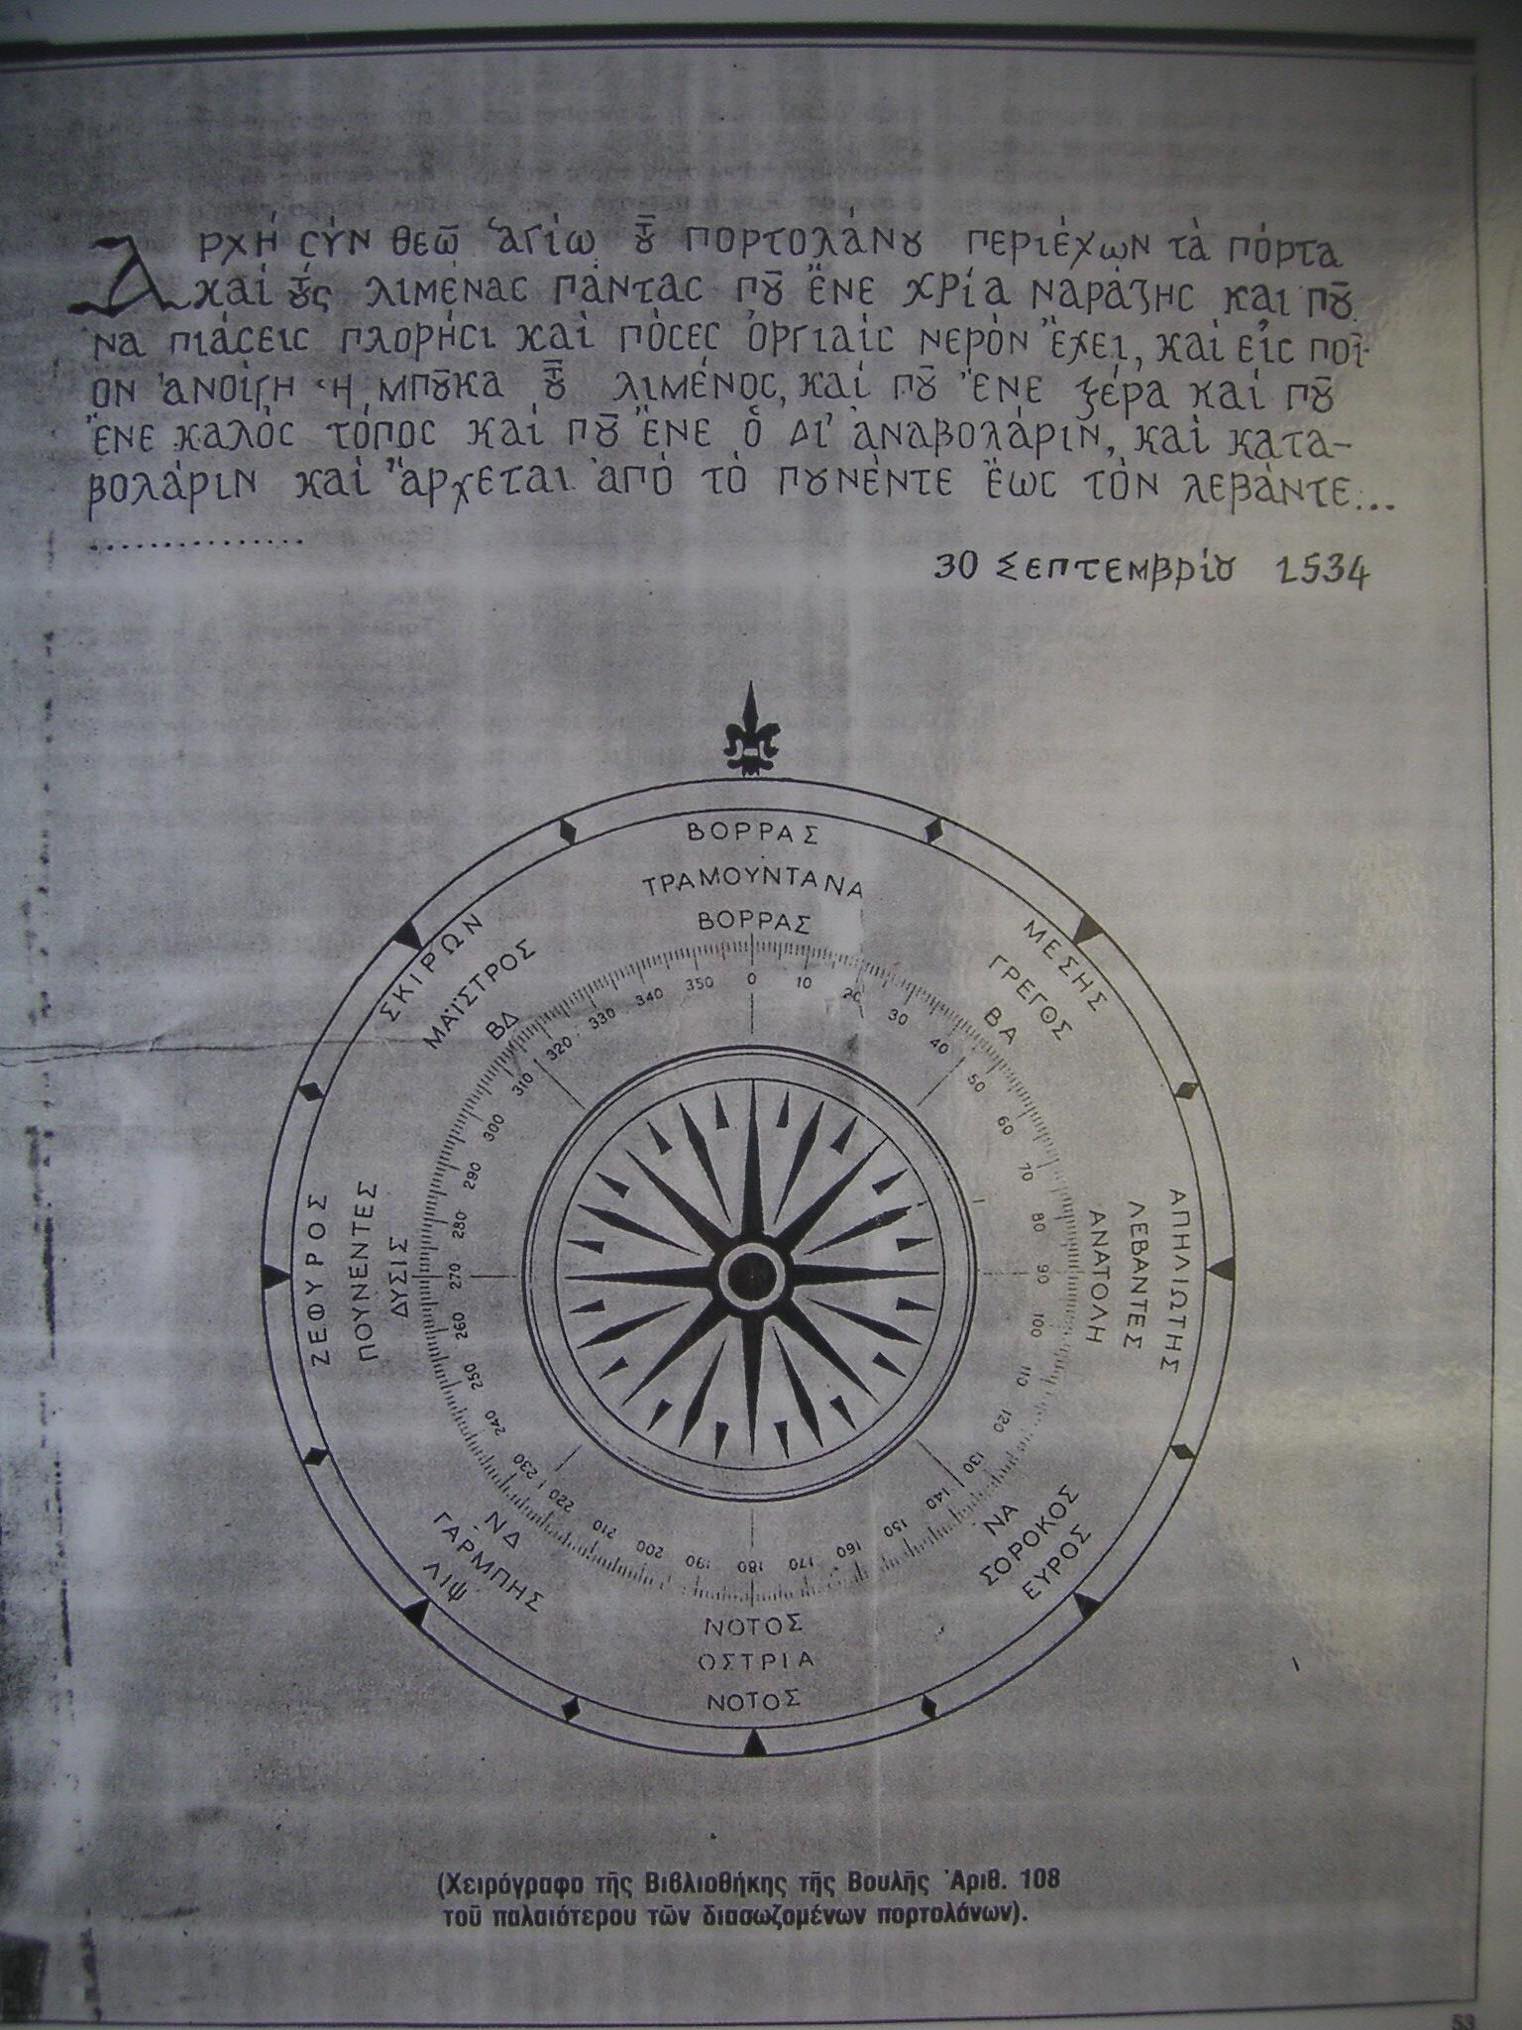 Ἀρχή σύν θεῶ ἁγίω τοῦ πορτολάνου περιέχων τὰ πόρτα
καί τούς λιμένας πάντας ποῦ ἔνε χρία ναράξης και ποῦ
να πιάσεις πλορήσι καὶ πόσες ὀργιαίς νερόν ἔχει, καί εἰς ποῖ-
ον ἀνοίγη ἡ μποῦκα τοῦ λιμένος, καί ποῦ ἔνε ξέρα καί ποῦ
ἔνε καλός τόπος καί ποῦ ἔνε ὁ δι' ἀναβολάριν, καί κατα-
βολάριν καί ἄρχεται ἀπό τὸ πουνέντε ἕως τόν λεβάντε...
..............
30 Σεπτεμβρίου 1534
ΒΟΡΡΑΣ
ΤΡΑΜΟΥΝΤΑΝΑ
ΒΟΡΡΑΣ
ΜΕΣΗΣ
ΓΡΕΓΟΣ
ΒΑ
ΑΠΗΛΙΩΤΗΣ
ΛΕΒΑΝΤΕΣ
ΑΝΑΤΟΛΗ
ΝΑ
ΣΟΡΟΚΟΣ
ΕΥΡΟΣ
ΝΟΤΟΣ
ΟΣΤΡΙΑ
ΝΟΤΟΣ
ΝΔ
ΓΑΡΜΠΗΣ
ΛΙΨ
ΖΕΦΥΡΟΣ
ΠΟΥΝΕΝΤΕΣ
ΔΥΣΙΣ
ΣΚΙΡΩΝ
ΜΑΪΣΤΡΟΣ
ΒΔ
0 10 20 30 40 50 60 70 80 90 100 110 120 130 140 150 160 170 180 190 200 210 220 230 240 250 260 270 280 290 300 310 320 330 340 350
(Χειρόγραφο τῆς Βιβλιοθήκης τῆς Βουλῆς Ἀριθ. 108
τοῦ παλαιότερου τῶν διασωζομένων πορτολάνων).
53